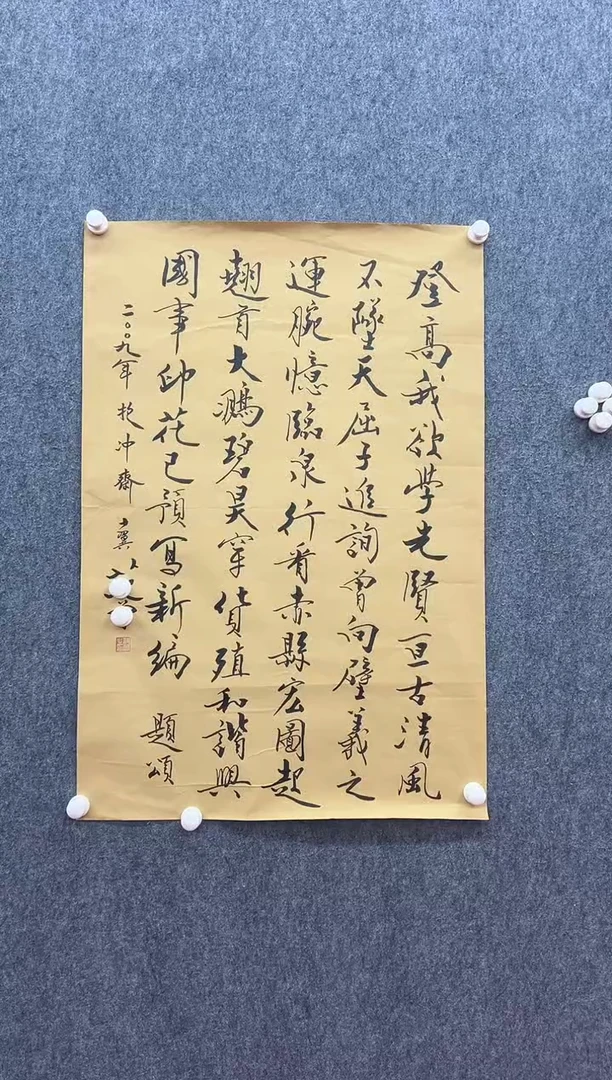 登高我欲學先賢亘古清風
不墜天屈子追詢曾向壁羲之
運腕憶臨泉行看赤縣宏圖起
翹首大鵬碧昊穿貨殖和諧興
國事印花已預寫新編 題頌
二〇〇九年 抱冲齋 士翼